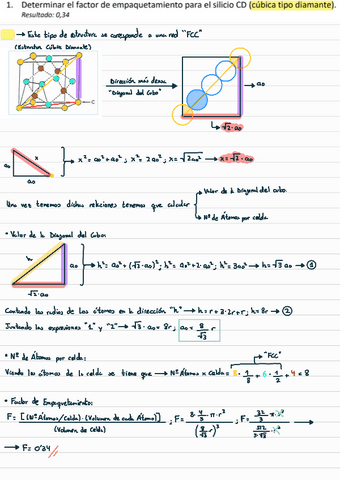 1. Determinar el factor de empaquetamiento para el silicio CD (cúbica tipo diamante).
Resultado: 0,34
→ Este tipo de estructura se corresponde a una red "FCC"
(Estructura Cúbica Diamante)
Dirección más densa
"Diagonal del Cubo"
→ a₀
C
↳ √2·a₀
a₀
x
a₀
→ x² = a₀² + a₀² ; x² = 2a₀² ; x = √2a₀² → x = √2·a₀
Una vez tenemos dichas relaciones tenemos que calcular
→ Valor de la Diagonal del Cubo.
→ Nº de Átomos por celda.
• Valor de la Diagonal del Cubo:
h
a₀
√2·a₀
→ h² = a₀² + (√2·a₀)² ; h² = a₀² + 2·a₀² ; h² = 3a₀² → h = √3 a₀ → 1
Contando los radios de los átomos en la dirección "h" → h = r + 3·2r + r ; h = 8r → 2
Juntando las expresiones "1" y "2" → √3·a₀ = 8r ; a₀ = 8/√3 r
• Nº de Átomos por celda:
→ "FCC"
Viendo los átomos de la celda se tiene que → Nº Átomos x Celda = 8·1/8 + 6·1/2 + 4 = 8
• Factor de Empaquetamiento:
F = [(Nº Átomos/Celda)·(Volumen de cada Átomo)]/(Volumen de Celda) ; F = 8·4/3·π·r³/(8/√3 r)³ ; F = 32/3·π·r³/512/3√3·r³ →
→ F = 0'34